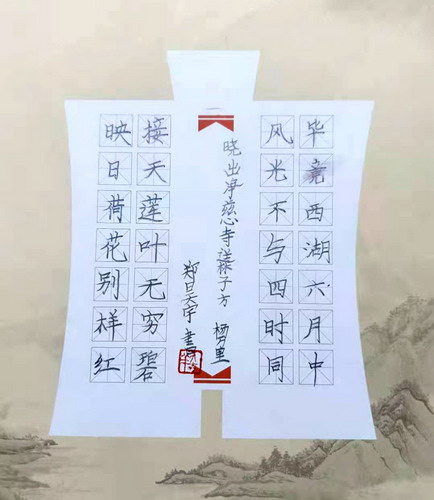 毕竟西湖六月中
风光不与四时同
晓出净慈寺送林子方
杨万里
郑天宇 書
接天莲叶无穷碧
映日荷花别样红